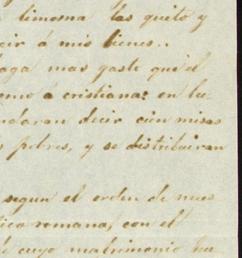 limosna las quito y
cir á mis bienes..
aga mas gasto que el
omo a cristiana: en lu
ndaran decir cien misas
s pobres, y se distribuiran
segun el orden de nues
lica romana, con el
de cuyo matrimonio hu